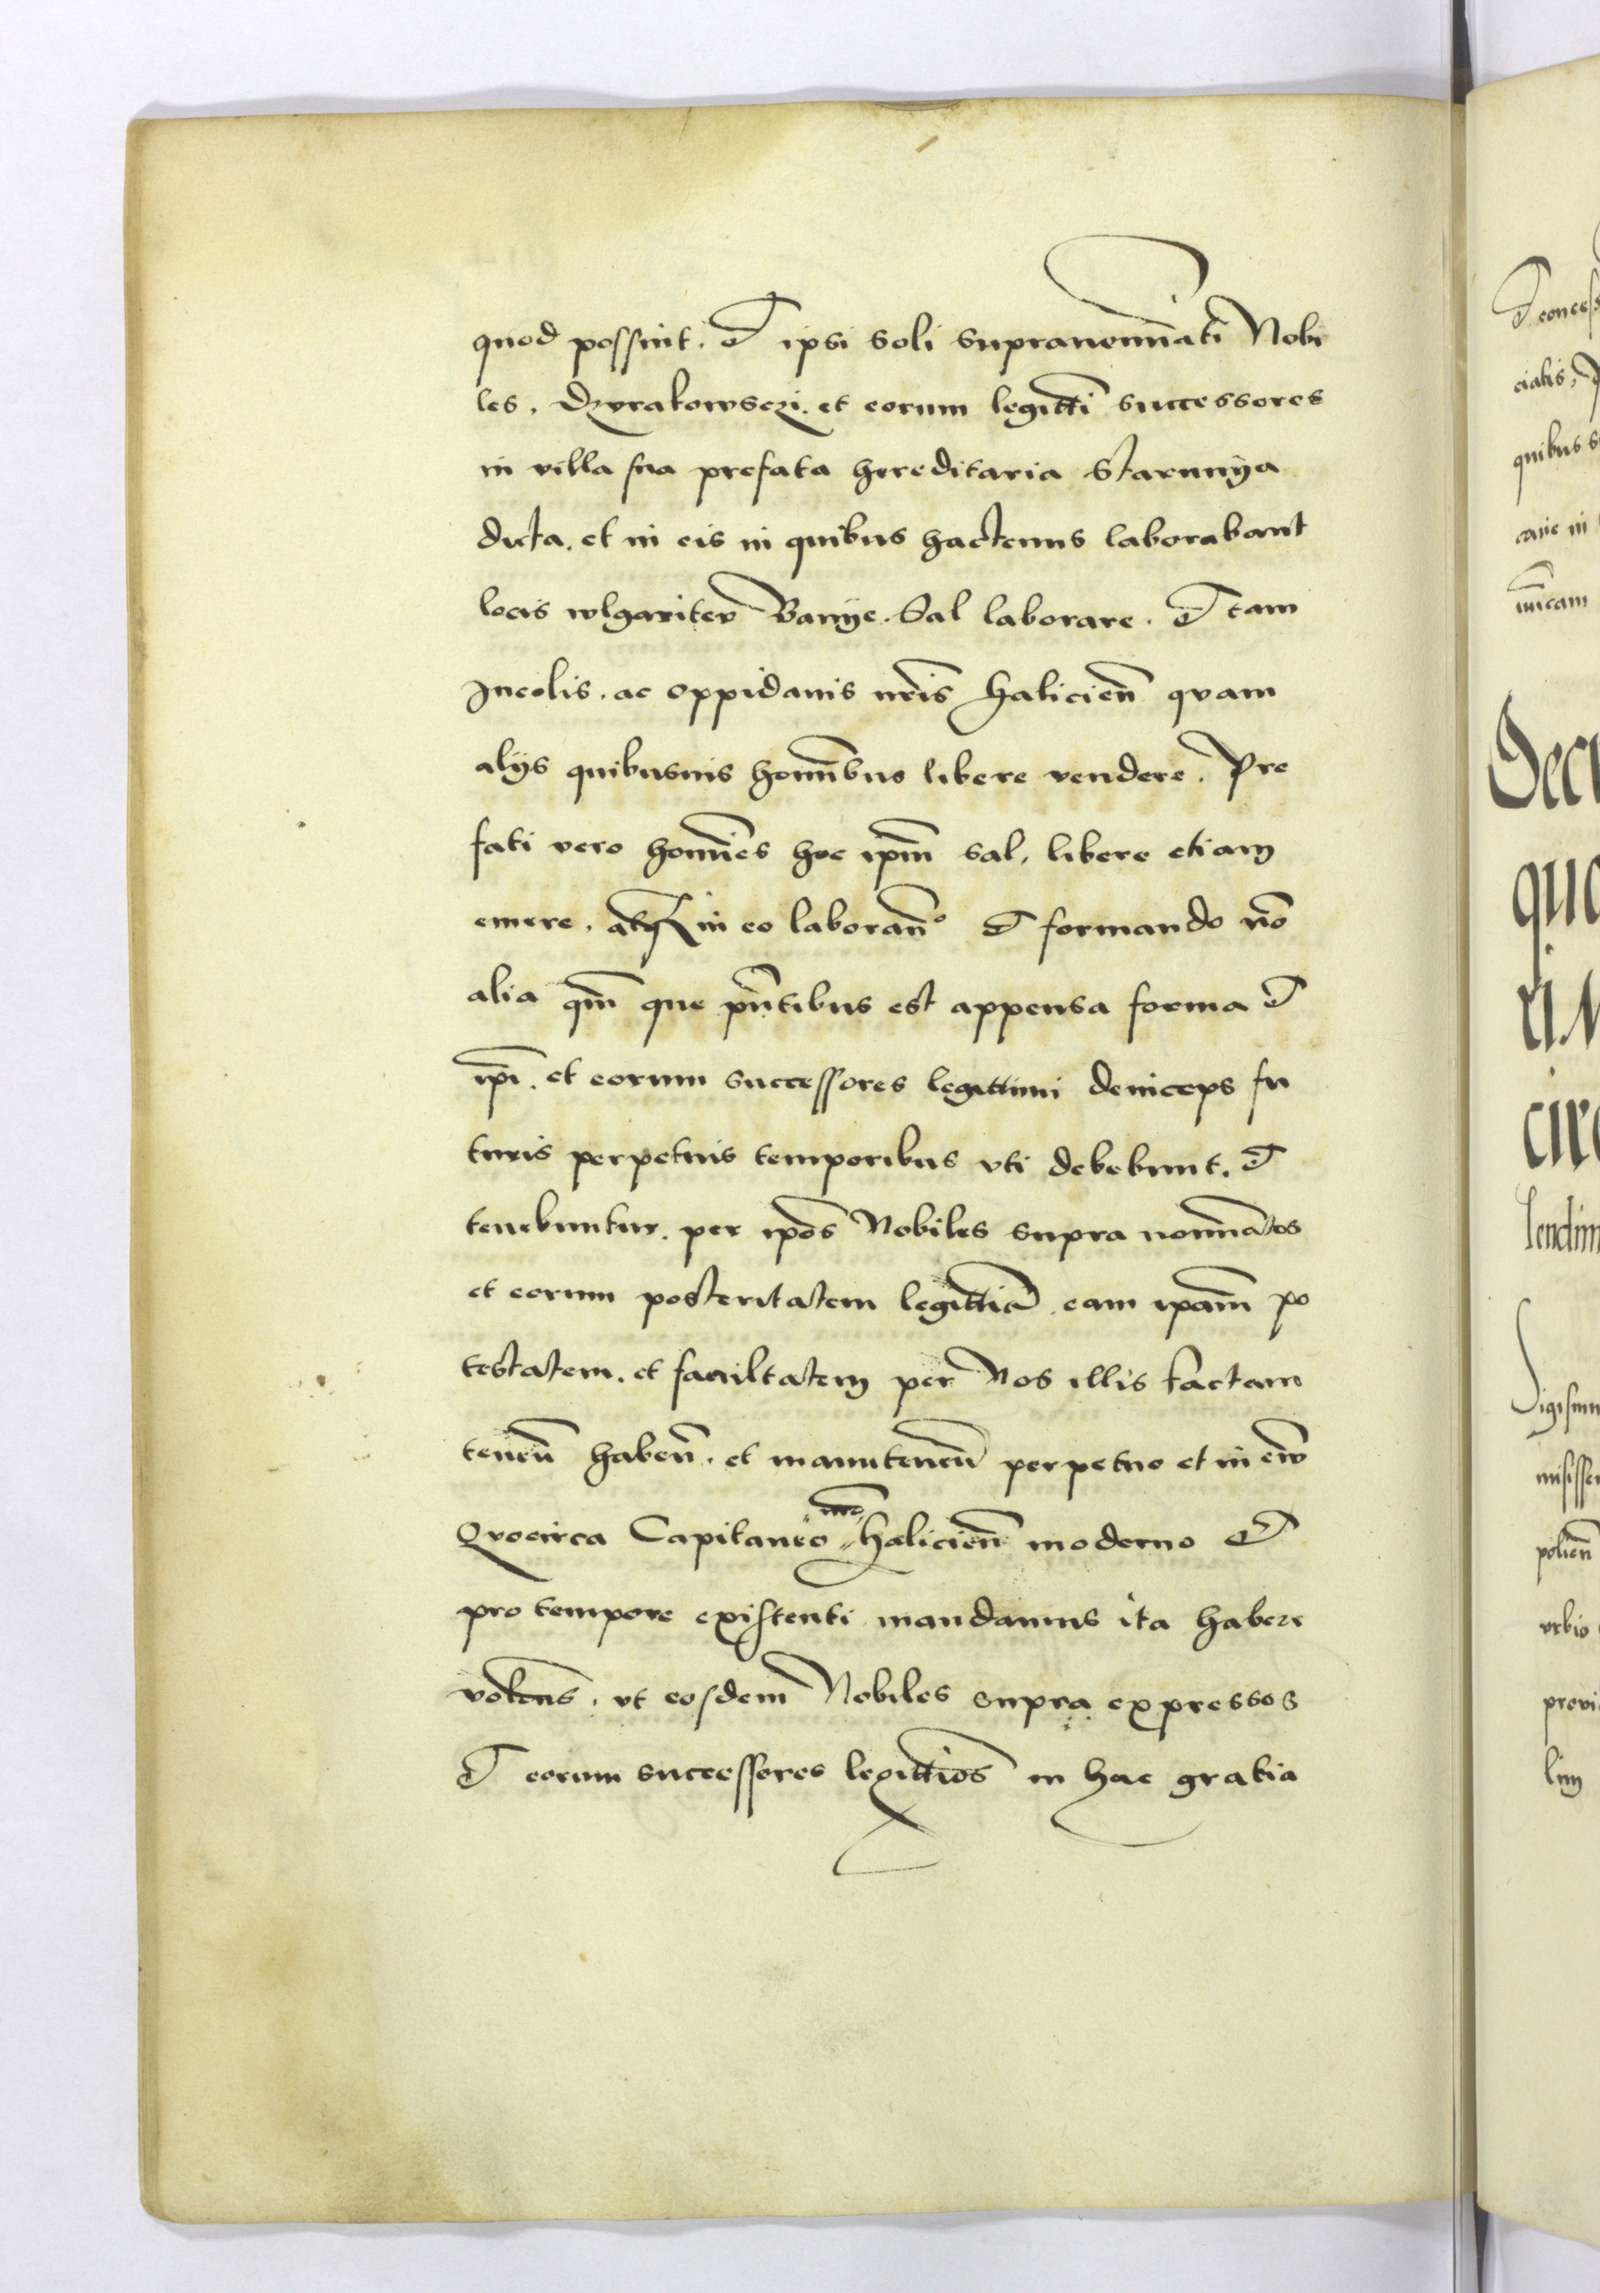 quod possint. Et ipsi soli supranominati Nobi
les. Dzurakowsczi. et eorum legittimi successores
in villa sua prefata hereditaria Starunya
dicta. et in eis in quibus hactenus laborabant
locis wlgariter Banye. Sal laborare. Et tam
Incolis. ac oppidanis nris halicien quam
alijs quibusuis hominibus libere vendere. Pre
fati vero homines hoc ipm sal. libere etiam
emere. atque in eo laborando Et formando no
alia qm que pntibus est appensa forma Et
ipi. et eorum successores legittimi deinceps fu
turis perpetuis temporibus vti debebunt. Et
tenebuntur. per ipos Nobiles supra nominatos
et eorum posteritatem legittima. eam ipam po
testatem. et facultatem per Nos illis factam
tenen haben. et manutenen perpetuo et in ewm
Quocirca Capitaneo nro halicien moderno Et
pro tempore existenti mandamus ita habere
volens. vt eosdem Nobiles supra expressos
Et eorum successores legittimos in hac gratia
Et concess
cialis,
quibus
carie in
unicam
Decr
quo
ri. M
circ
lendim
Sigismu
misisse
polien
vrbis
provi
lim